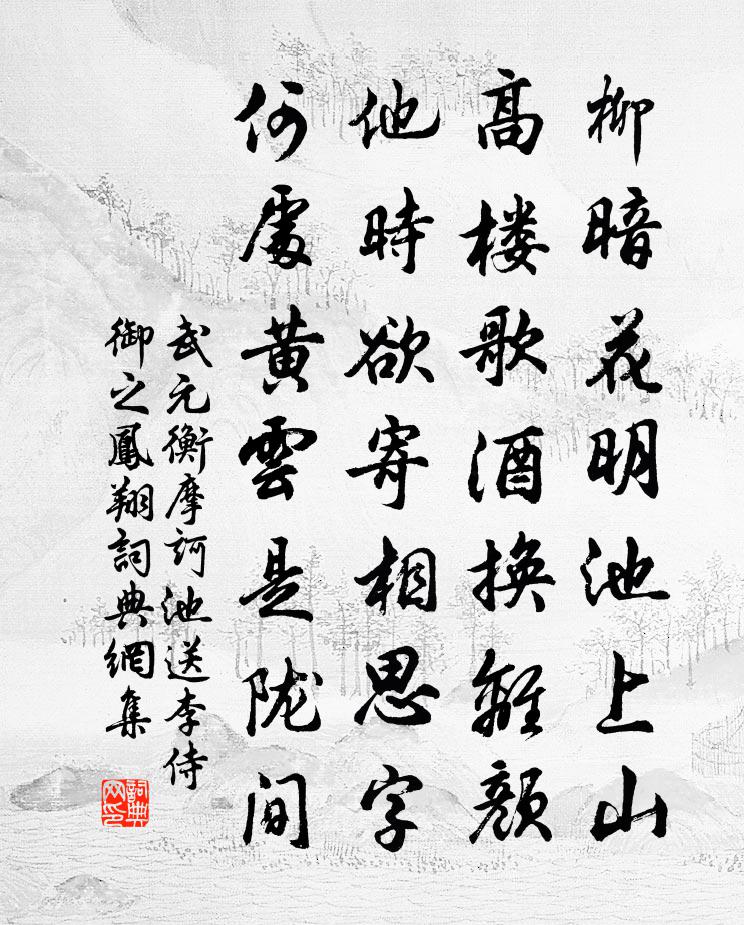 柳暗花明池上山
高楼歌酒換離顏
他時欲寄相思字
何處黄雲是陇间
武元衡摩訶池送李侍
御之鳳翔詞典網集
詞典
网印